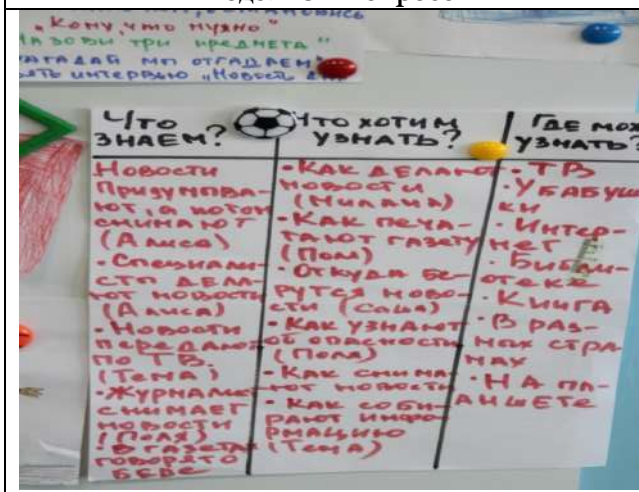 "Кому, что нужно"
назови три предмета"
загадай мы отгадаем
ять интервью "Новость
Что
знаем?
Новости
придумыва-
ют, а потом
снимают
(Алиса)
• Специали-
сты дела-
ют новости
(Алиса)
• Новости
передают
по ТВ.
(Тема)
• Журналист
снимает
новости
(Поля)
• В газетах
говорят о
Что хотим
узнать?
• Как делают
новости
(Милана)
• Как печа-
тают газету
(Поля)
• Откуда бе-
рутся ново-
сти (Саша)
• Как узнают
об опасности
(Поля)
• Как снима-
ют новости
• Как соби-
рают инфо-
рмацию
(Тема)
Где мож
узнать?
• ТВ
• У бабуш
ки
• Интер-
нет
• Библи-
отеке
• Книга
• В раз-
ных стра-
нах
• На пл-
аншете